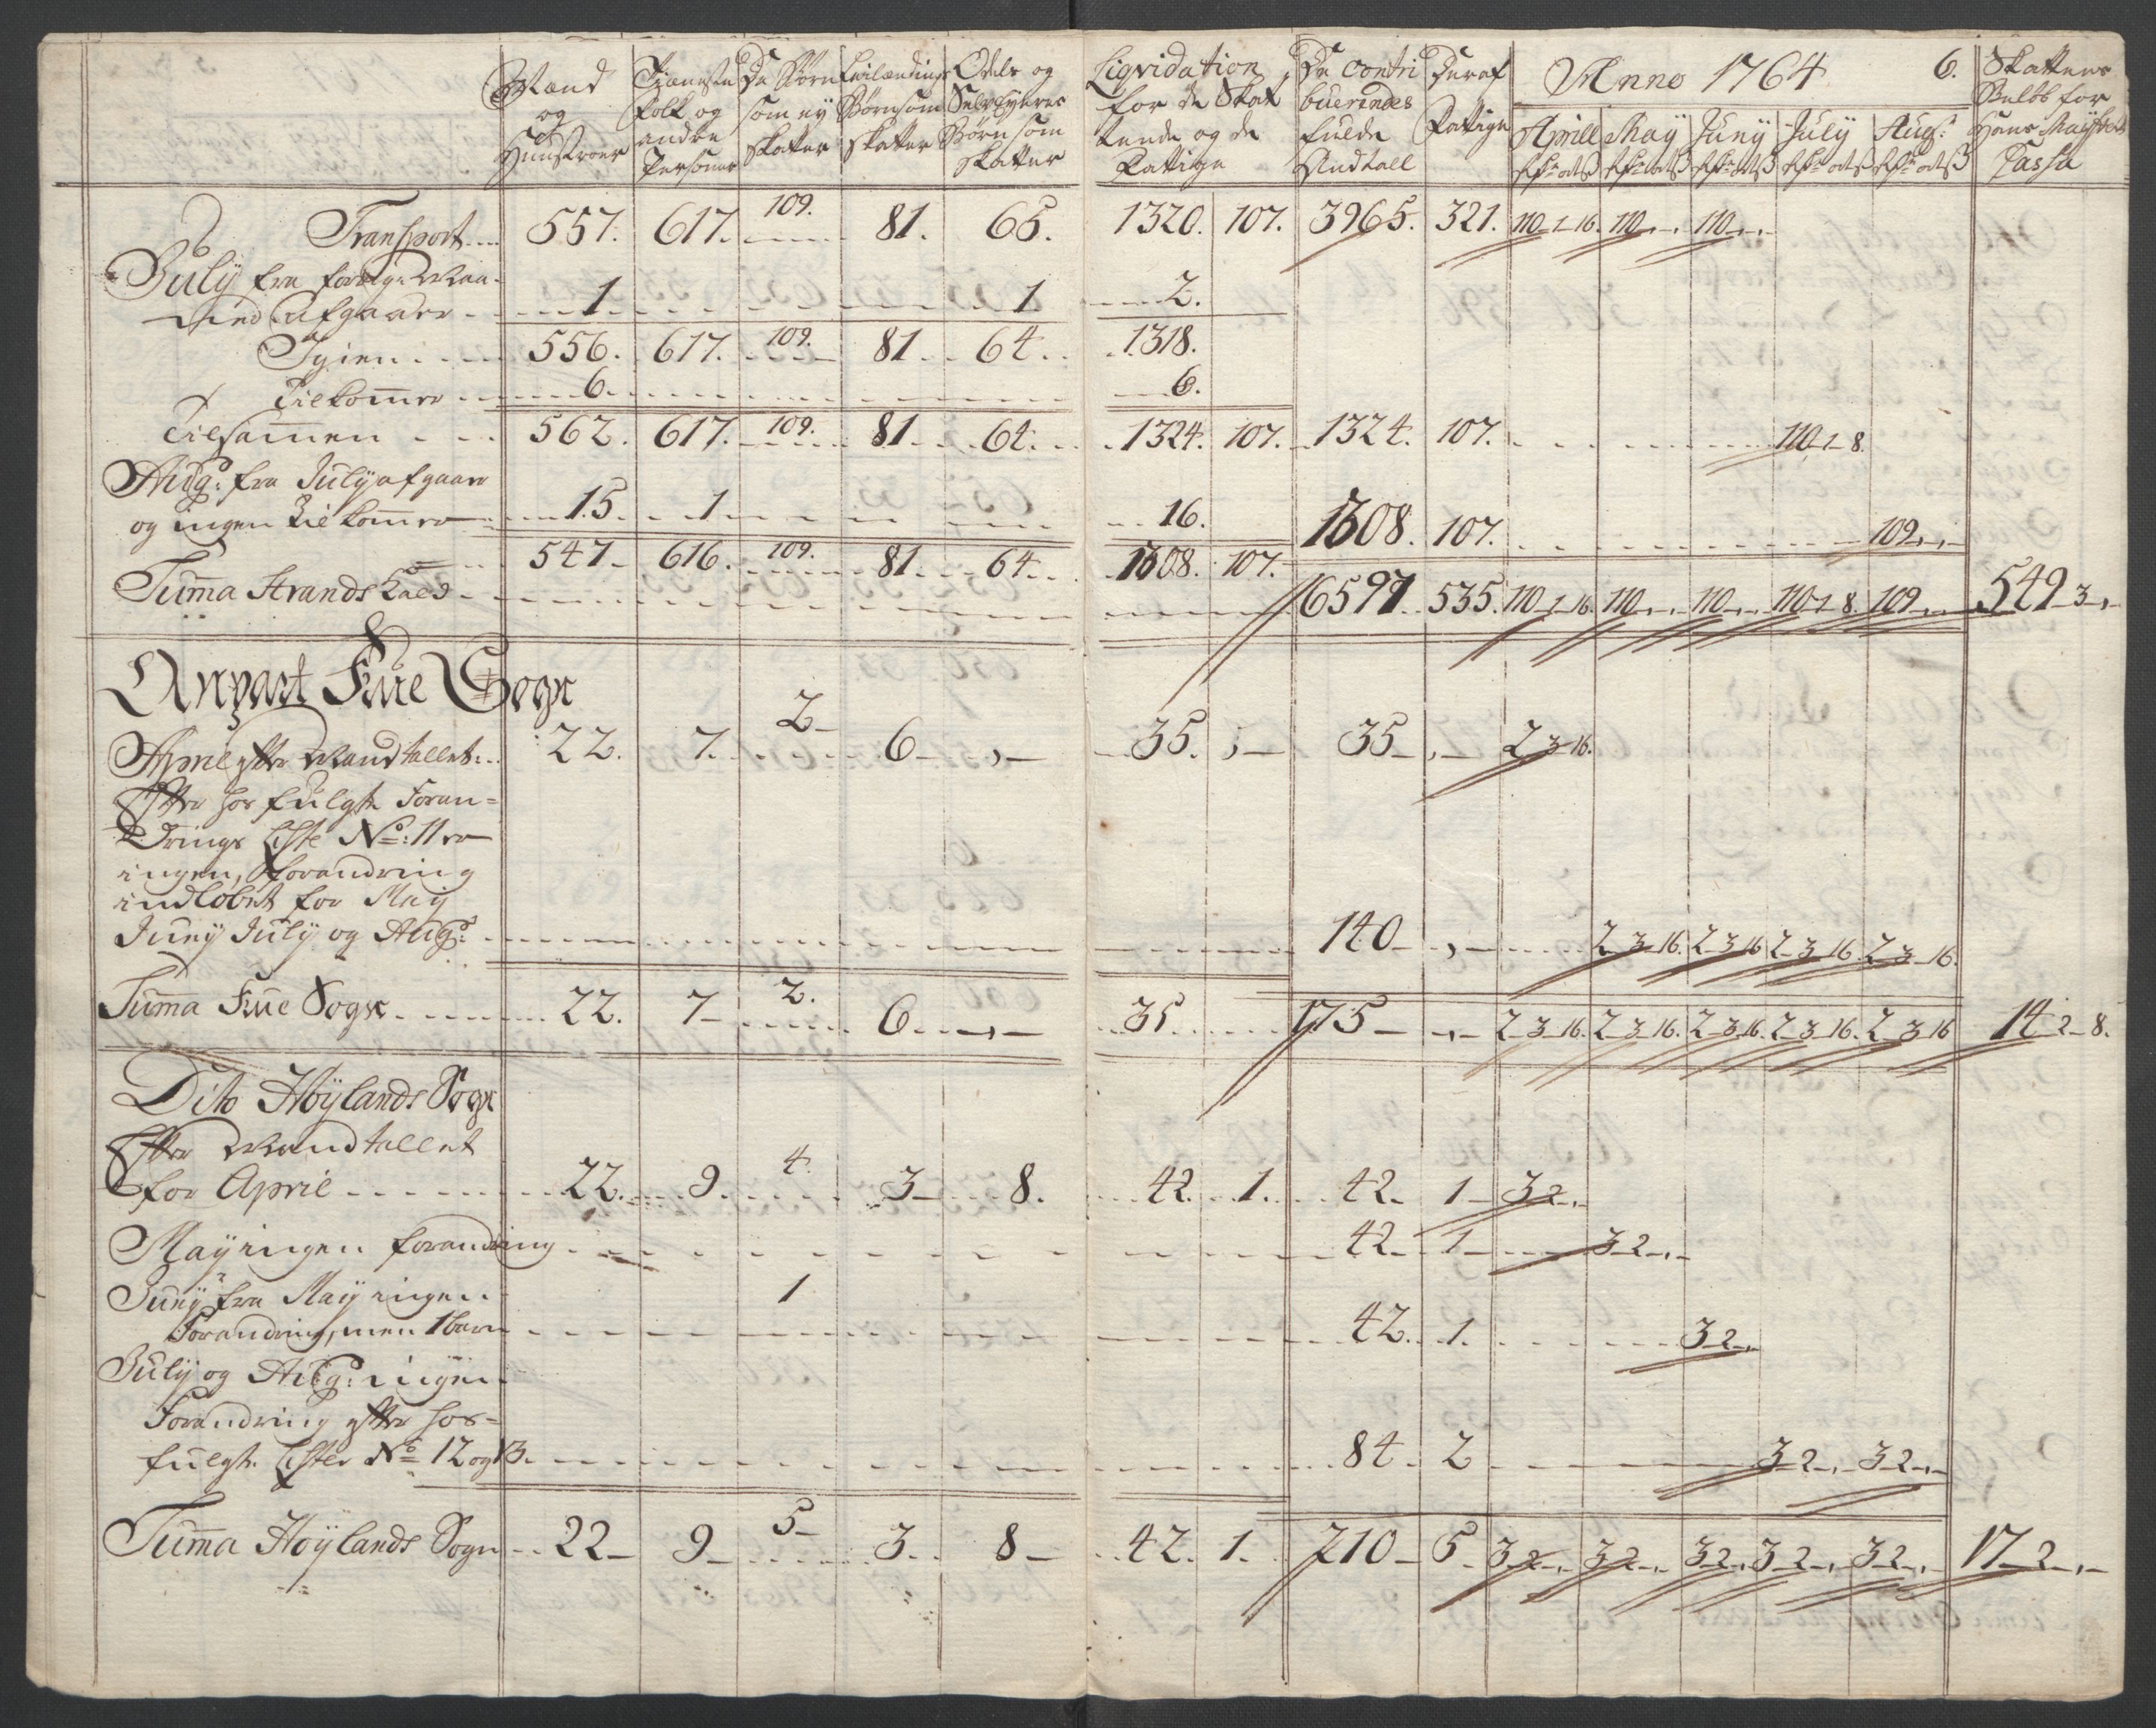 Mand og Hustroer | Tienneste Folk og andre Personer | De Børn som ey skatter | Leilændings Børn som skatter | Odels og Selveyeres Børn som skatter | Liqvidation for de Skattende og de Fattige | De contribuerendes fulde Andtall | Deraf Fattige | Anno 1764 | 6. | Skattens Beløb for Hans Mayts Cassa
Aprill | May | Juny | July | Aug:
Transport 557. 617. 109. 81. 65. 1320. 107. 3965. 321. 110-1-16. 110 110
July fra forrige Maa-
ned afgaaer 1 1 2.
Igien 556. 617. 109. 81 64. 1318.
Tilkomer 6. 6.
Tilsamen 562. 617. 109. 81. 64. 1324. 107. 1324. 107. 110-1-8.
Aug: fra July afgaar
og ingen Tilkomer 15. 1 16. 1308. 107. 109
547 616. 109. 81. 64. 1308. 107.
Suma Strands Læd 6597. 535. 110-1-16. 110 110 110-1-8. 109 549-3
Anpart Fue Sogn
April efter Mandtallet 22. 7. 2 6 35. 35 2-3-16.
Efter hosfulgte Foran=
drings Liste No: 11 er
ingen forandring
indløbet for May
Juny July og Aug: 140 2-3-16. 2-3-16 2-3-16. 2-3-16.
Suma Fue Sogn 22. 7 2. 6 35 175 2-3-16. 2-3-16. 2-3-16. 2-3-16. 2-3-16 14-2-8.
Dito Höylands Sogn
Efter Mandtallet
for April 22. 9. 4. 3 8. 42. 1. 42. 1 3-2
May ingen forandring 42 1 3-2
Juny fra May ingen 1
Forandring, men 1 barn 42. 1. 3-2
July og Aug: ingen
Forandring efter hos=
fulgte Lister No 12 og 13. 84. 2 3-2 3-2
Suma Höylands Sogn 22 9 5 3. 8 42. 1. 210 5. 3-2 3-2 3-2 3-2 3-2 17-2